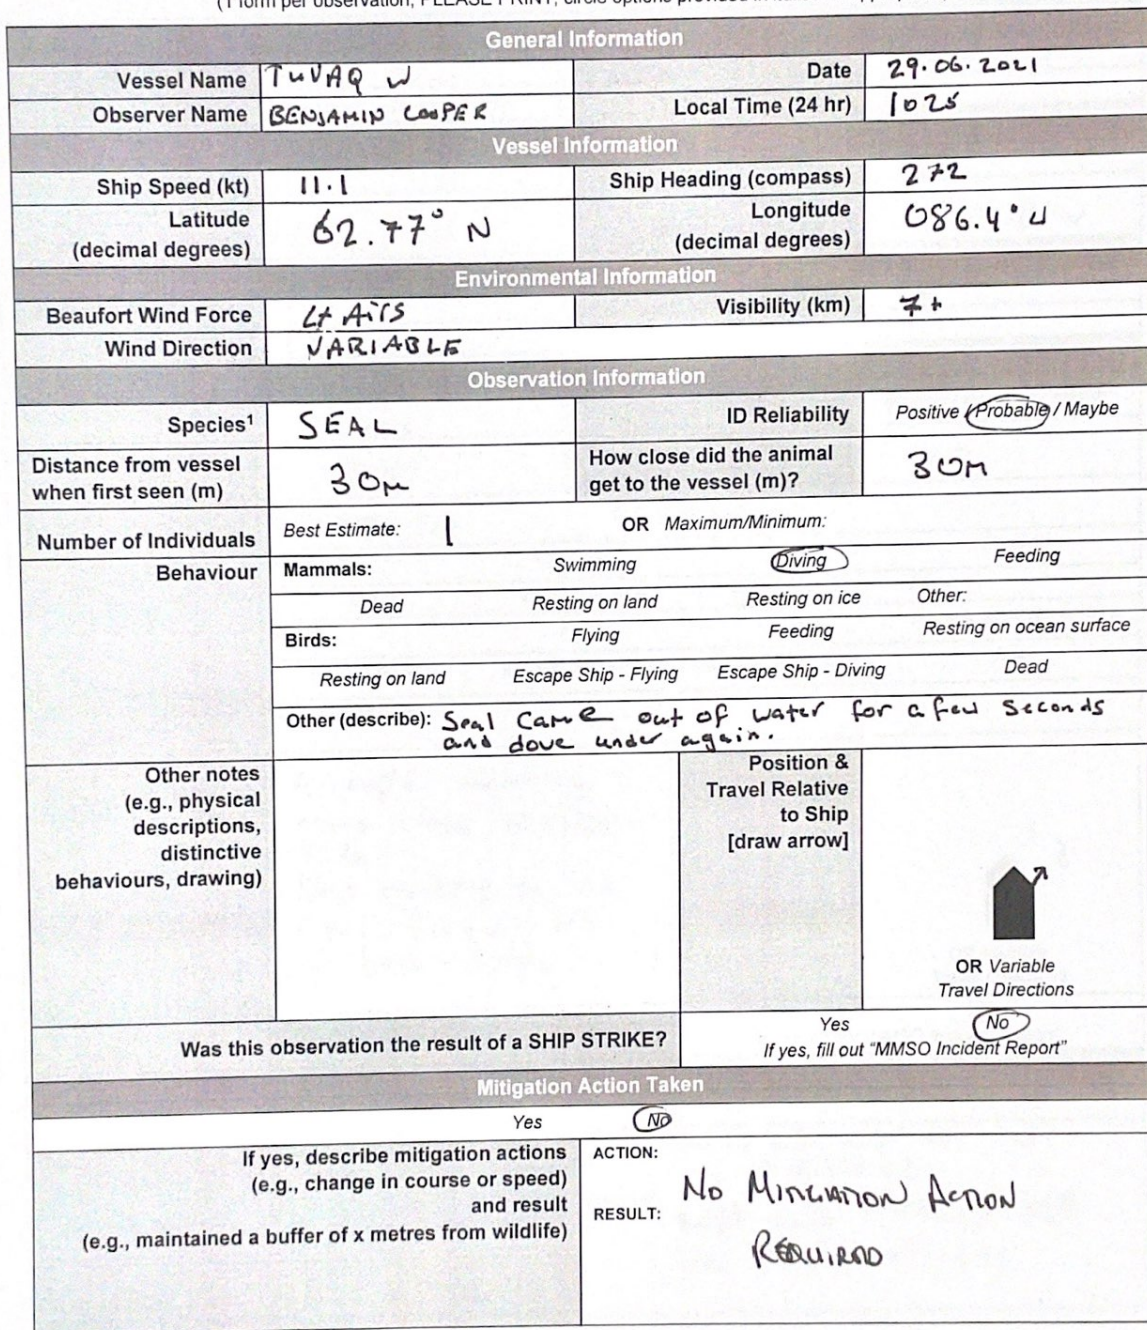 (1 form per observation, PLEASE PRINT, circle options provided in
General Information
Vessel Name TUVAQ W Date 29.06.2021
Observer Name BENJAMIN COOPER Local Time (24 hr) 1025
Vessel Information
Ship Speed (kt) 11.1 Ship Heading (compass) 272
Latitude (decimal degrees) 62.77° N Longitude (decimal degrees) 086.4° W
Environmental Information
Beaufort Wind Force Lt Airs Visibility (km) 7+
Wind Direction VARIABLE
Observation Information
Species¹ SEAL ID Reliability Positive / Probable / Maybe
Distance from vessel when first seen (m) 30m How close did the animal get to the vessel (m)? 30m
Number of Individuals Best Estimate: 1 OR Maximum/Minimum:
Behaviour Mammals: Swimming Diving Feeding
Dead Resting on land Resting on ice Other:
Birds: Flying Feeding Resting on ocean surface
Resting on land Escape Ship - Flying Escape Ship - Diving Dead
Other (describe): Seal Came out of water for a few seconds
and dove under again.
Other notes
(e.g., physical
descriptions,
distinctive
behaviours, drawing)
Position &
Travel Relative
to Ship
[draw arrow]
OR Variable
Travel Directions
Was this observation the result of a SHIP STRIKE? Yes No
If yes, fill out "MMSO Incident Report"
Mitigation Action Taken
Yes No
If yes, describe mitigation actions
(e.g., change in course or speed)
and result
(e.g., maintained a buffer of x metres from wildlife)
ACTION:
No MITIGATION ACTION
RESULT:
REQUIRED